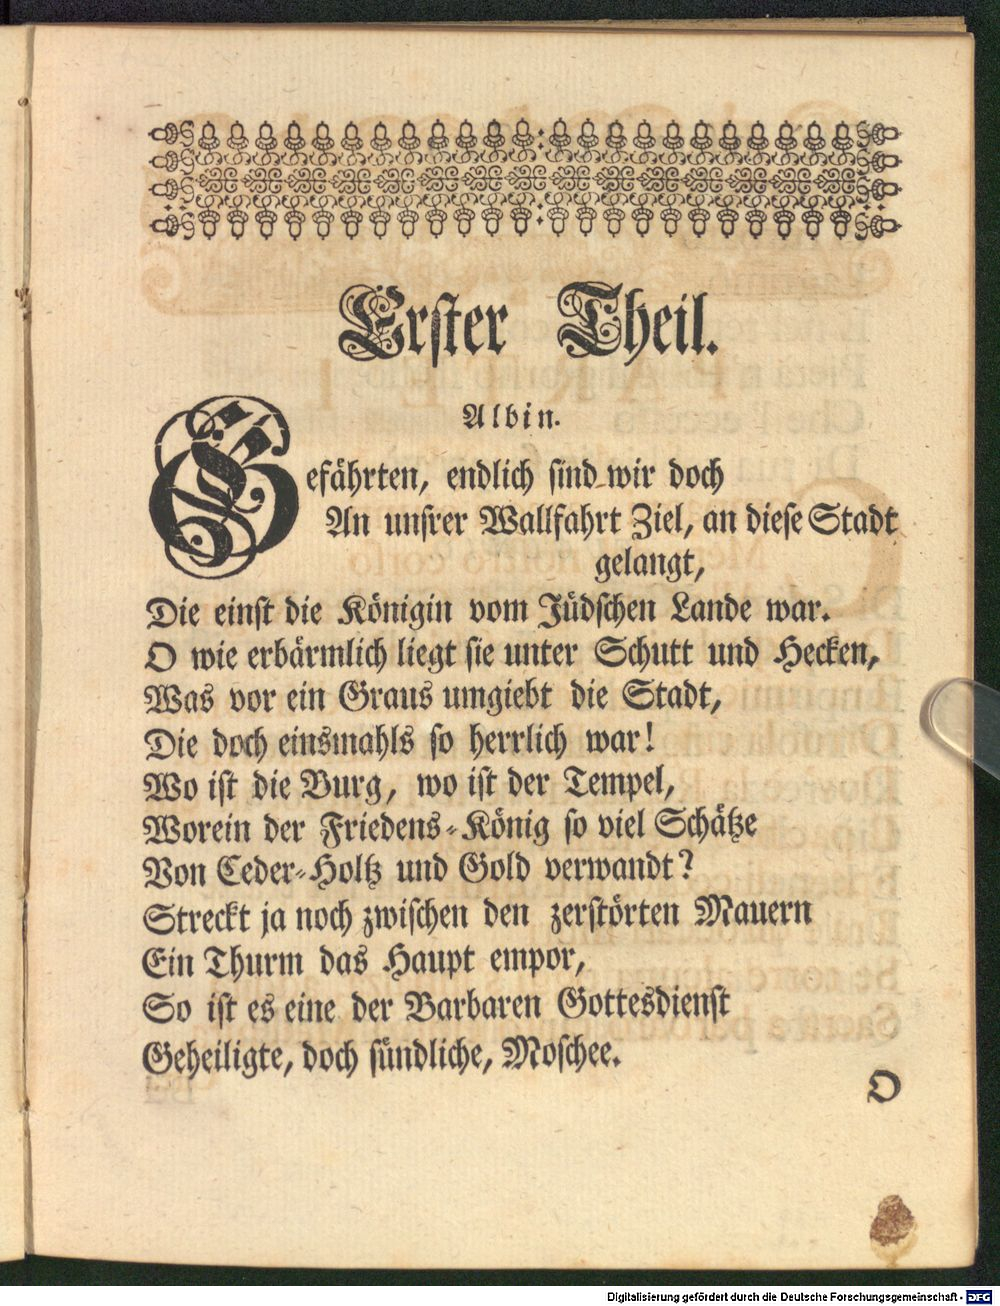 Erster Theil.
Albin.
Gefährten, endlich sind wir doch
An unsrer Wallfahrt Ziel, an diese Stadt
gelangt,
Die einst die Königin vom Jüdschen Lande war.
O wie erbärmlich liegt sie unter Schutt und Hecken,
Was vor ein Graus umgiebt die Stadt,
Die doch einsmahls so herrlich war!
Wo ist die Burg, wo ist der Tempel,
Worein der Friedens-König so viel Schätze
Von Ceder-Holtz und Gold verwandt?
Streckt ja noch zwischen den zerstörten Mauern
Ein Thurm das Haupt empor,
So ist es eine der Barbaren Gottesdienst
Geheiligte, doch sündliche, Moschee.
O
Digitalisierung gefördert durch die Deutsche Forschungsgemeinschaft - DFG